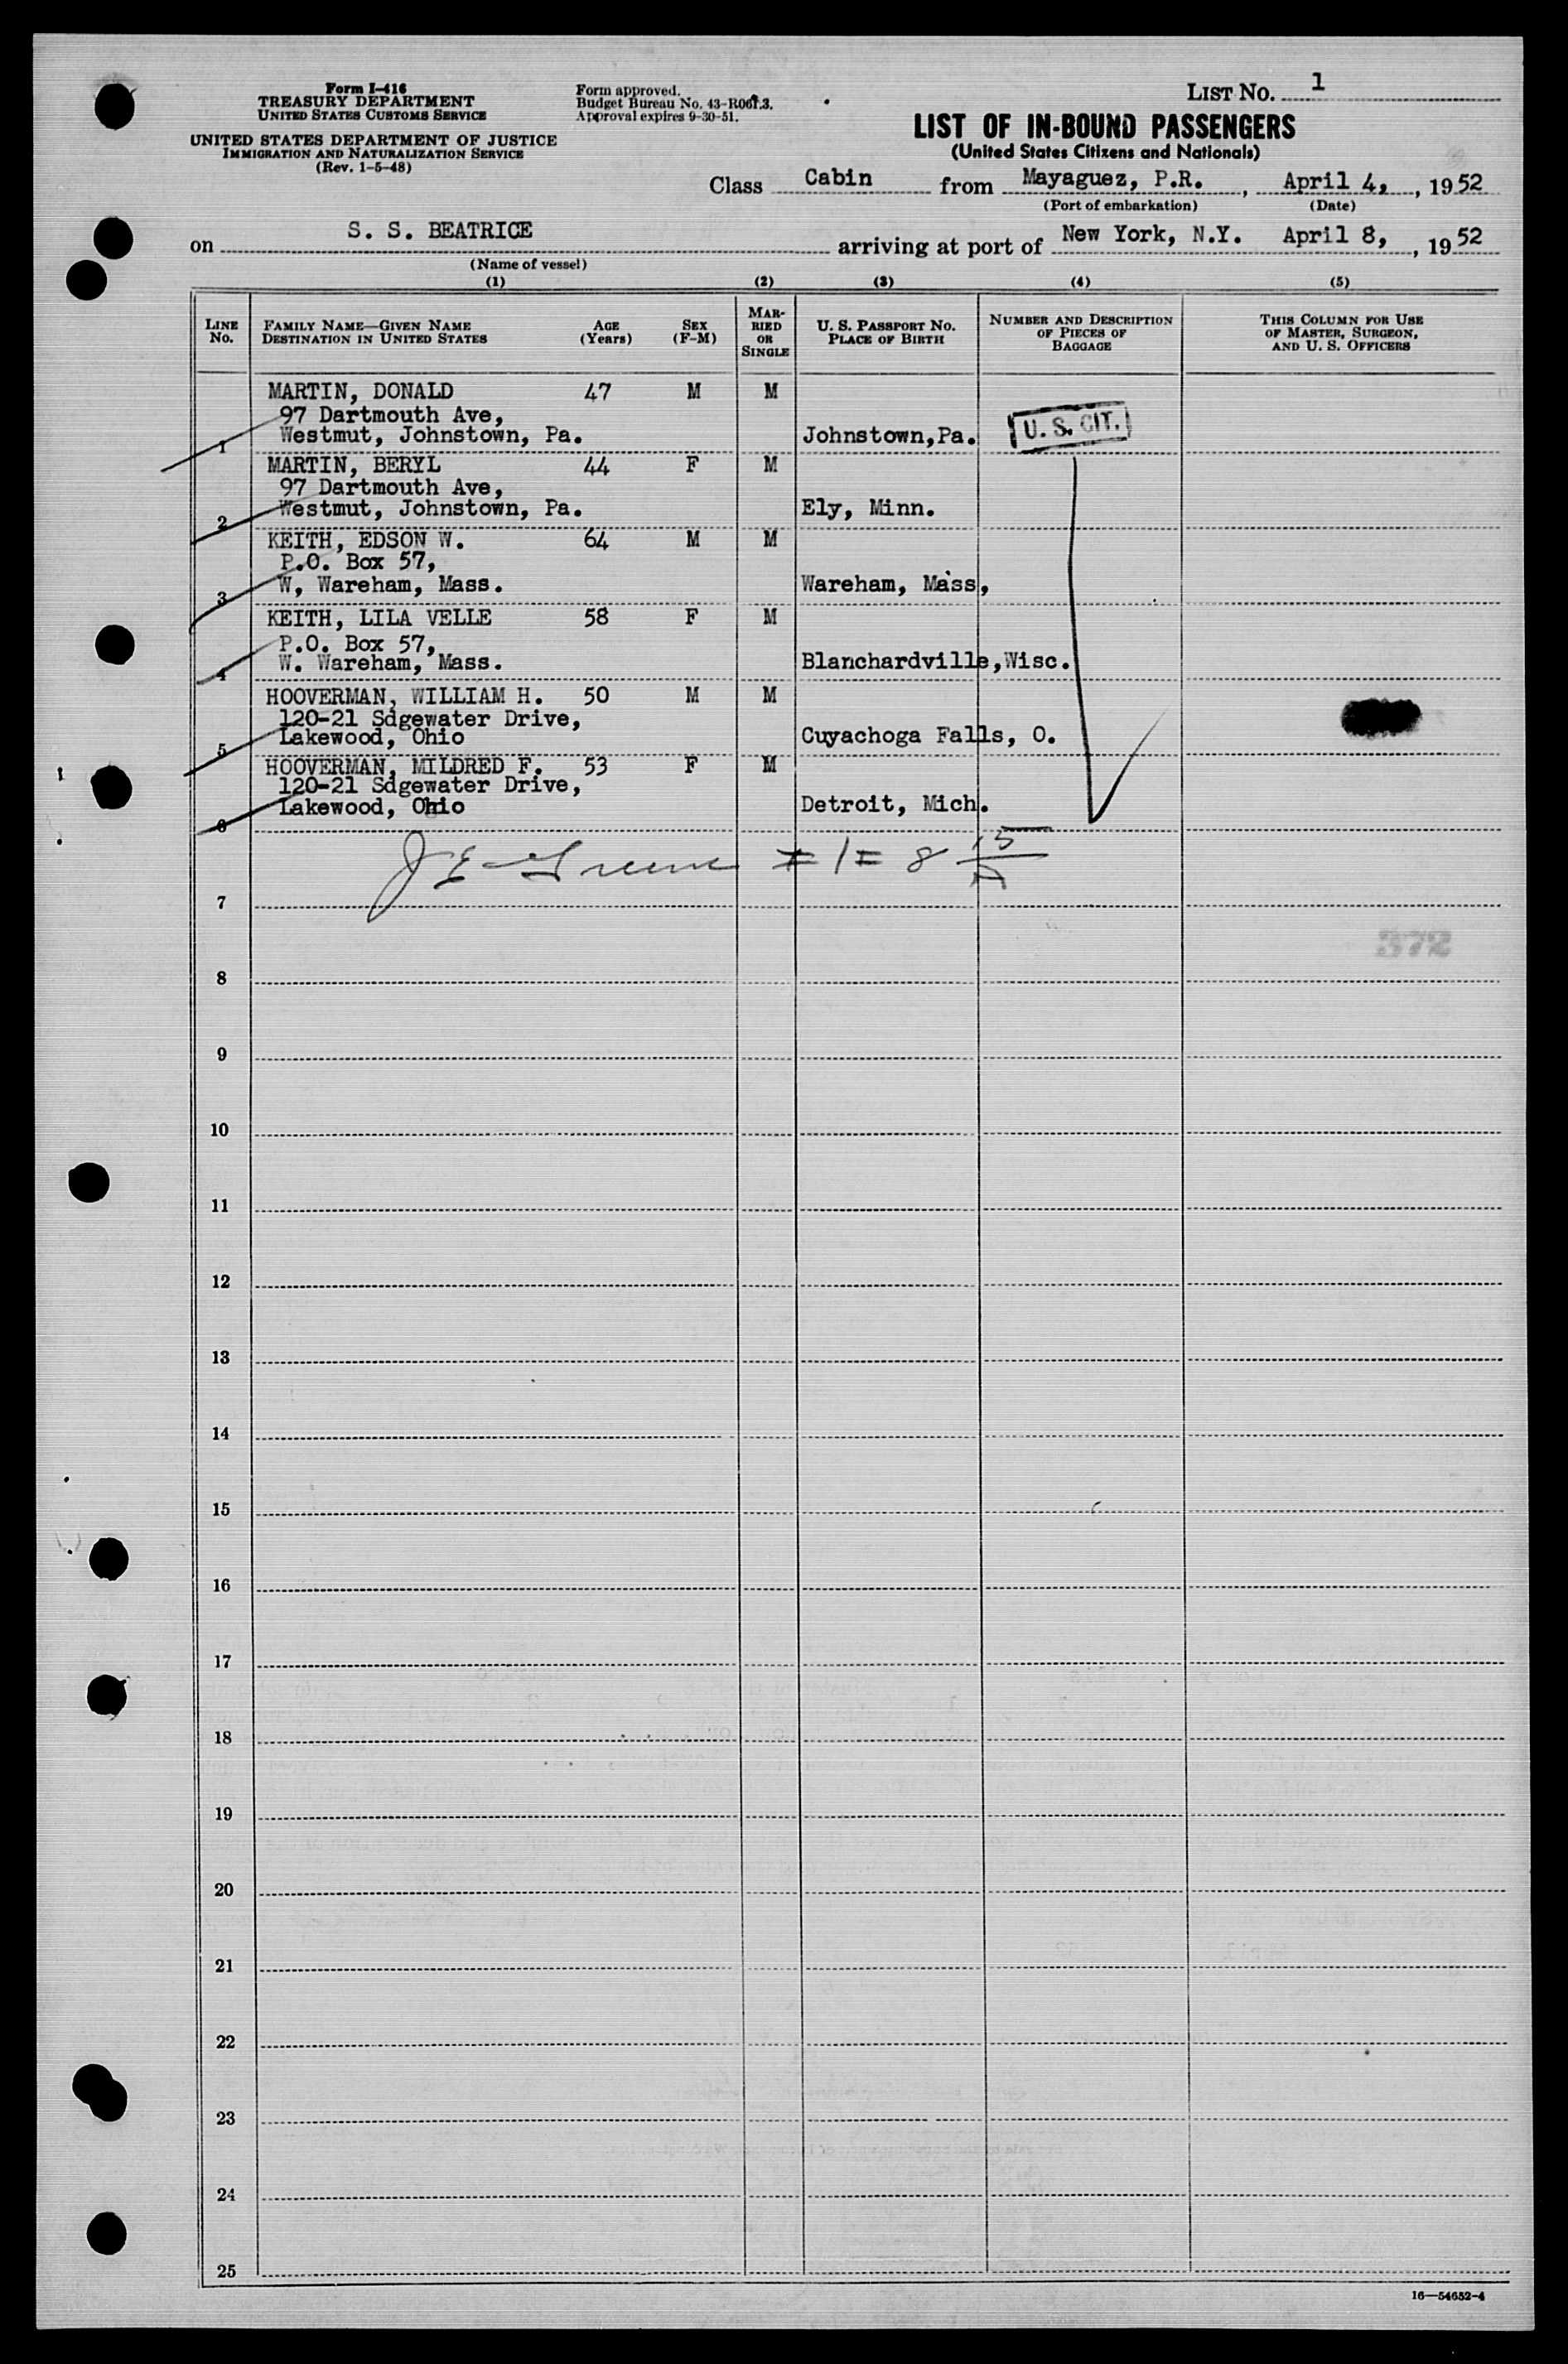 Form I-416
TREASURY DEPARTMENT
UNITED STATES CUSTOMS SERVICE
UNITED STATES DEPARTMENT OF JUSTICE
IMMIGRATION AND NATURALIZATION SERVICE
(Rev. 1-5-48)
Form approved.
Budget Bureau No. 43-R061.3.
Approval expires 9-30-51.
LIST NO. 1
LIST OF IN-BOUND PASSENGERS
(United States Citizens and Nationals)
Class Cabin from Mayaguez, P.R., April 4, , 1952
(Port of embarkation) (Date)
on S. S. BEATRICE arriving at port of New York, N.Y. April 8, , 1952
(Name of vessel)
(1) (2) (3) (4) (5)
LINE NO. FAMILY NAME—GIVEN NAME DESTINATION IN UNITED STATES AGE (Years) SEX (F-M) MARRIED OR SINGLE U. S. PASSPORT NO. PLACE OF BIRTH NUMBER AND DESCRIPTION OF PIECES OF BAGGAGE THIS COLUMN FOR USE OF MASTER, SURGEON, AND U. S. OFFICERS
MARTIN, DONALD 47 M M
97 Dartmouth Ave,
1 Westmut, Johnstown, Pa. Johnstown,Pa. U. S. CIT.
MARTIN, BERYL 44 F M
97 Dartmouth Ave,
2 Westmut, Johnstown, Pa. Ely, Minn.
KEITH, EDSON W. 64 M M
P.O. Box 57,
3 W, Wareham, Mass. Wareham, Mass,
KEITH, LILA VELLE 58 F M
P.O. Box 57,
4 W. Wareham, Mass. Blanchardville,Wisc.
HOOVERMAN, WILLIAM H. 50 M M
120-21 Sdgewater Drive,
5 Lakewood, Ohio Cuyachoga Falls, O.
HOOVERMAN, MILDRED F. 53 F M
120-21 Sdgewater Drive,
6 Lakewood, Ohio Detroit, Mich.
7
372
8
9
10
11
12
13
14
15
16
17
18
19
20
21
22
23
24
25
16—54652-4